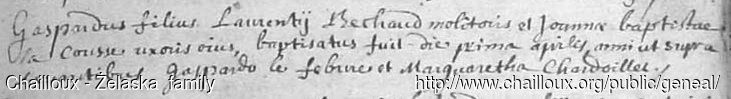 Gaspardus filius Laurentij Bechaud molitoris et Joannæ baptistae
la Cousse uxoris eius, baptisatus fuit die prima aprilis anni ut supra
levantibus Gaspardo le febure et Marguaretha Chardoillet.
Chailloux - Zelaska family http://www.chailloux.org/public/geneal/